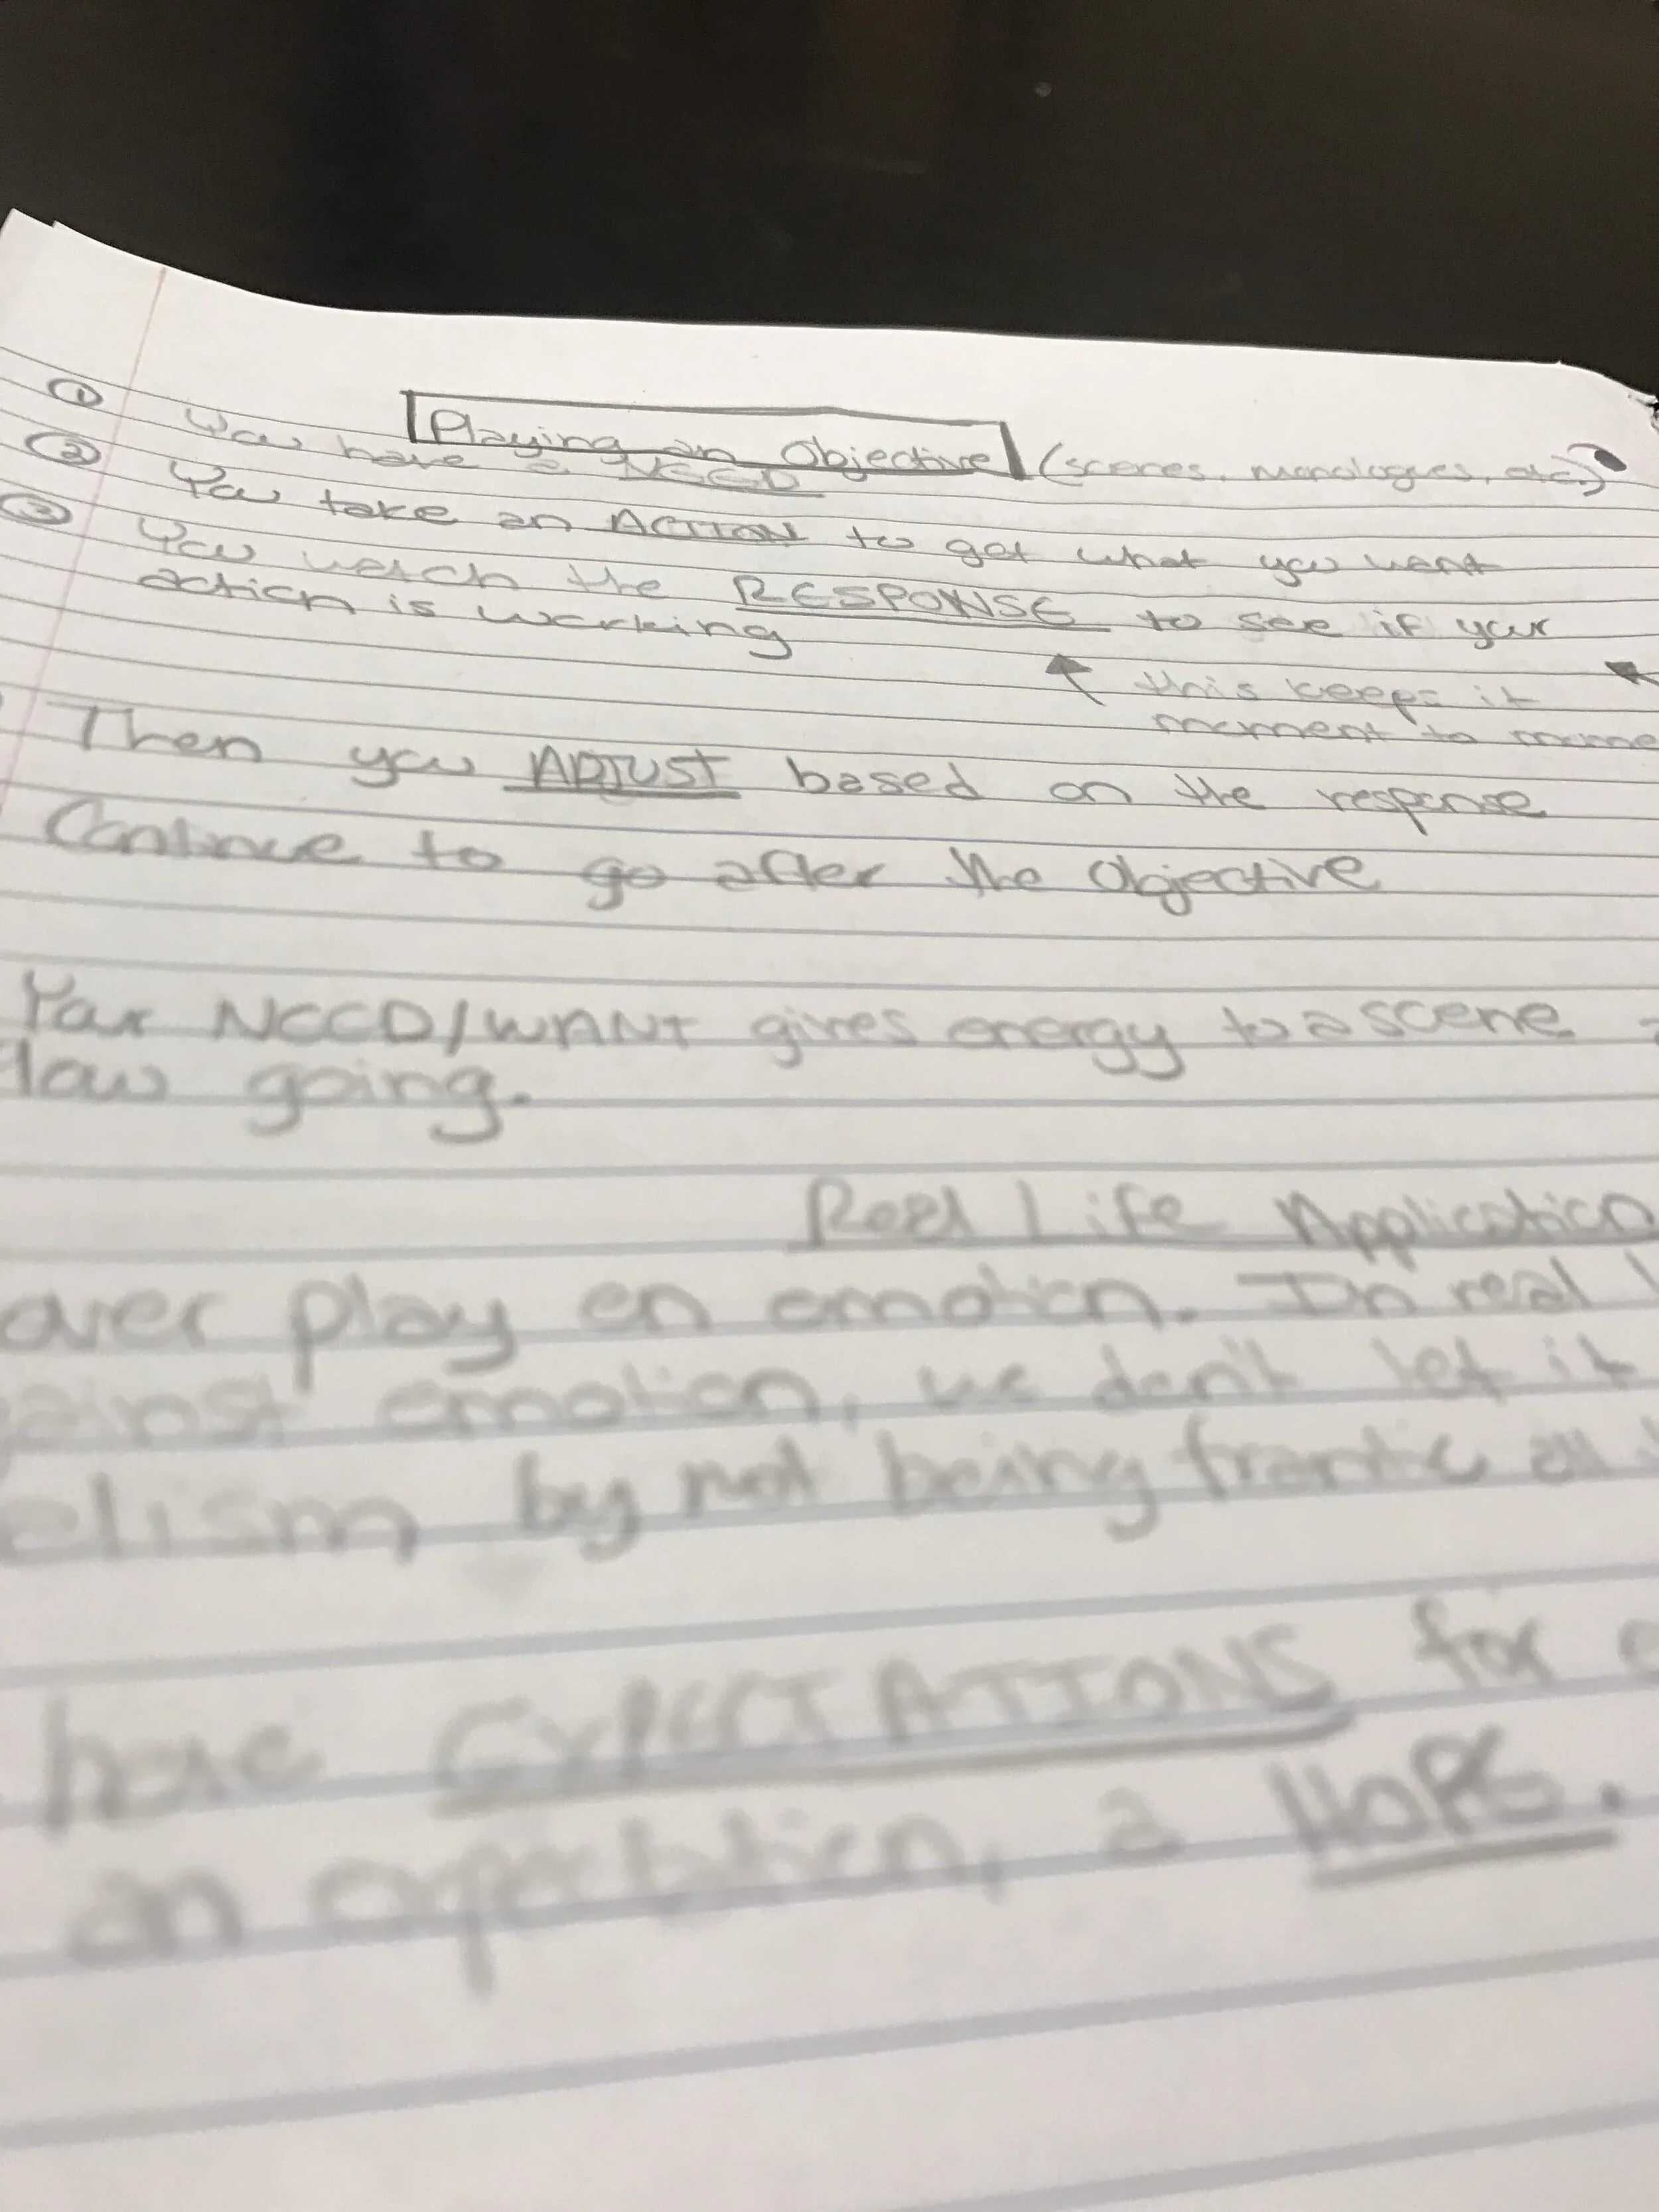 Playing an Objective (scenes, monologues, etc.)
① You have a NEED
② You take an ACTION to get what you want
③ You watch the RESPONSE to see if your
action is working
this keeps it
moment to mome
Then you ADJUST based on the response
Continue to go after the Objective
Your NEED/WANT gives energy to a scene
low going.
Real Life Application
over play an emotion. In real l
ainst emotion, we don't let it
elism by not being frantic all
have EXPECTATIONS for e
an expectation, a HOPE.